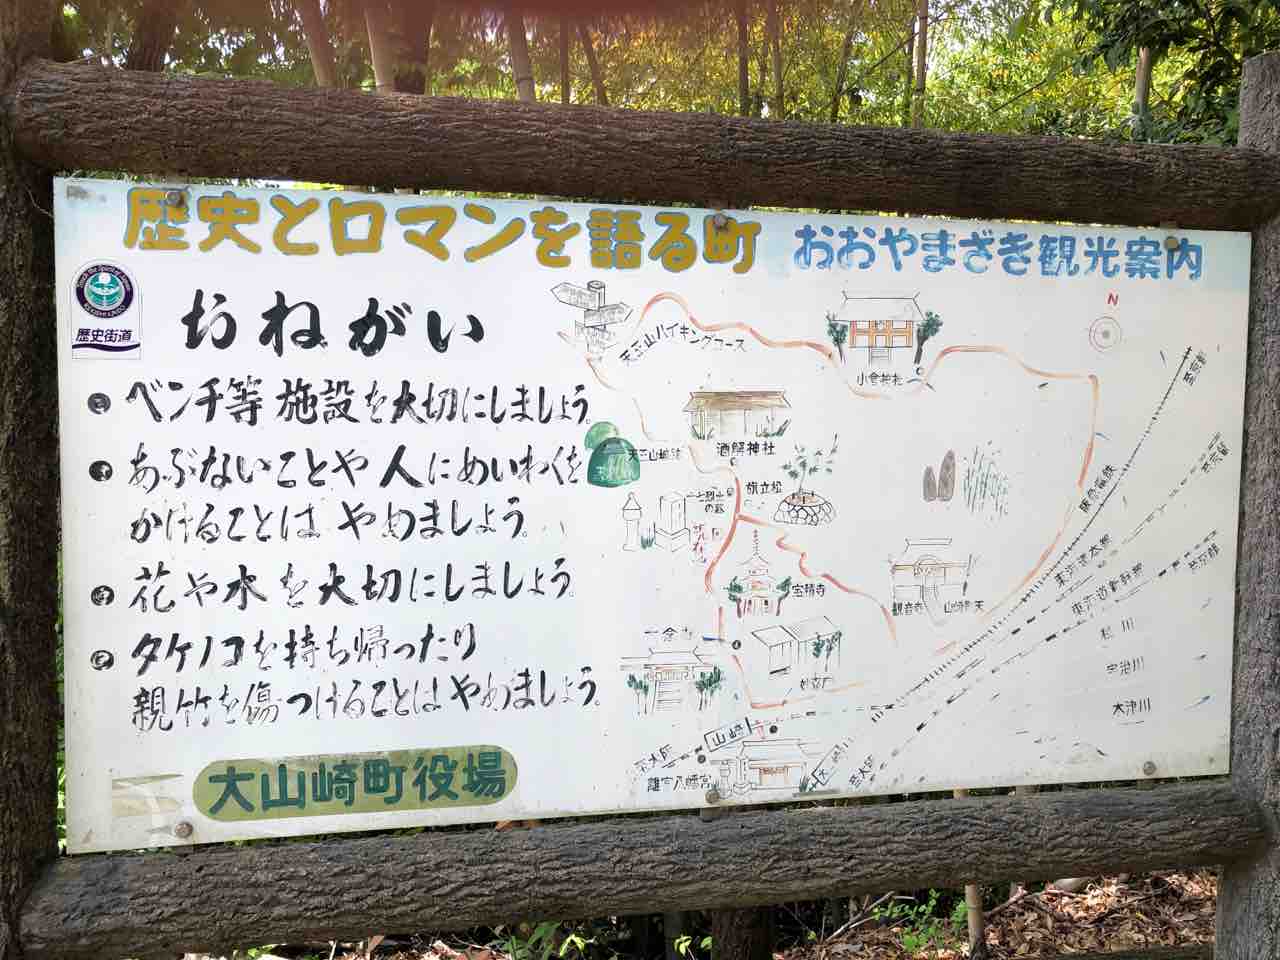 歴史とロマンを語る町 おおやまざき観光案内
歴史街道
おねがい
ベンチ等施設を大切にしましょう。
あぶないことや人にめいわくを
かけることはやめましょう。
花や水を大切にしましょう。
タケノコを持ち帰ったり
親竹を傷つけることはやめましょう。
大山崎町役場
N
天王山ハイキングコース
小倉神社
酒解神社
天王山城跡
旗立松
十七烈士の墓
宝積寺
観音寺
妙喜庵
山崎
離宮八幡宮
至大阪
至大阪
至京都
至京都
至京都
阪急電鉄
東海道本線
東海道新幹線
桂川
宇治川
木津川